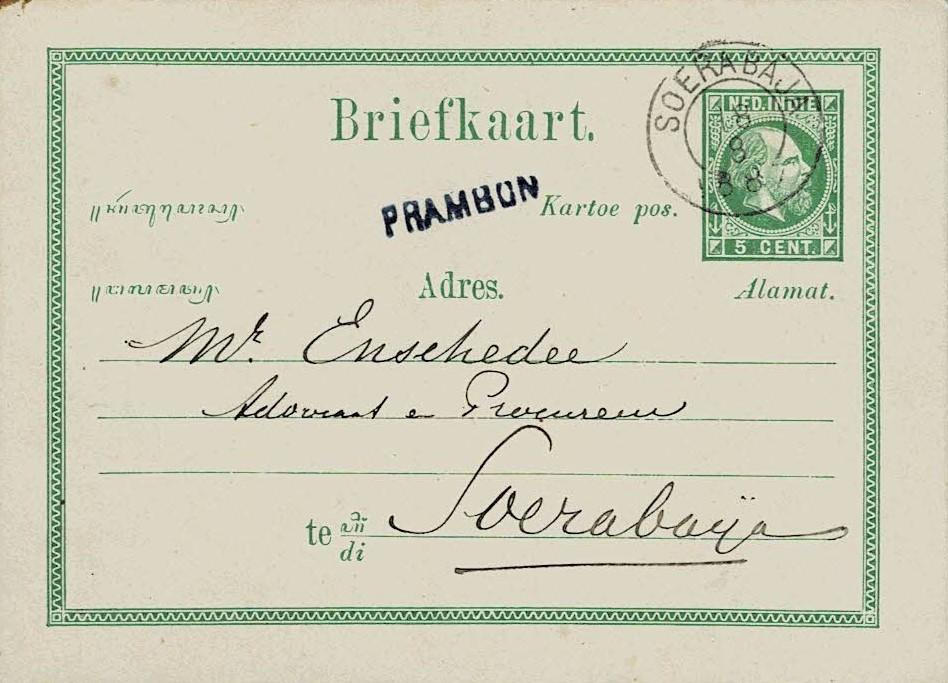 Briefkaart.
SOERABAJA
8
8
88
NED. INDIE
5 CENT.
PRAMBON
Kartoe pos.
Adres.
Alamat.
Mr. Enschedee
Advocaat e Procureur
te
di
Soerabaija